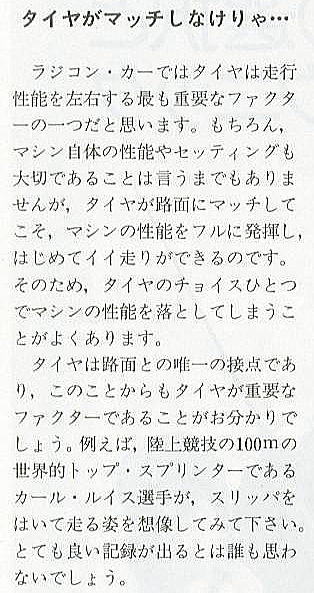 タイヤがマッチしなけりゃ…
ラジコン・カーではタイヤは走行
性能を左右する最も重要なファクタ
ーの一つだと思います。もちろん，
マシン自体の性能やセッティングも
大切であることは言うまでもありま
せんが，タイヤが路面にマッチして
こそ，マシンの性能をフルに発揮し，
はじめてイイ走りができるのです。
そのため，タイヤのチョイスひとつ
でマシンの性能を落としてしまうこ
とがよくあります。
タイヤは路面との唯一の接点であ
り，このことからもタイヤが重要な
ファクターであることがお分かりで
しょう。例えば，陸上競技の100mの
世界的トップ・スプリンターである
カール・ルイス選手が，スリッパを
はいて走る姿を想像してみて下さい。
とても良い記録が出るとは誰も思わ
ないでしょう。